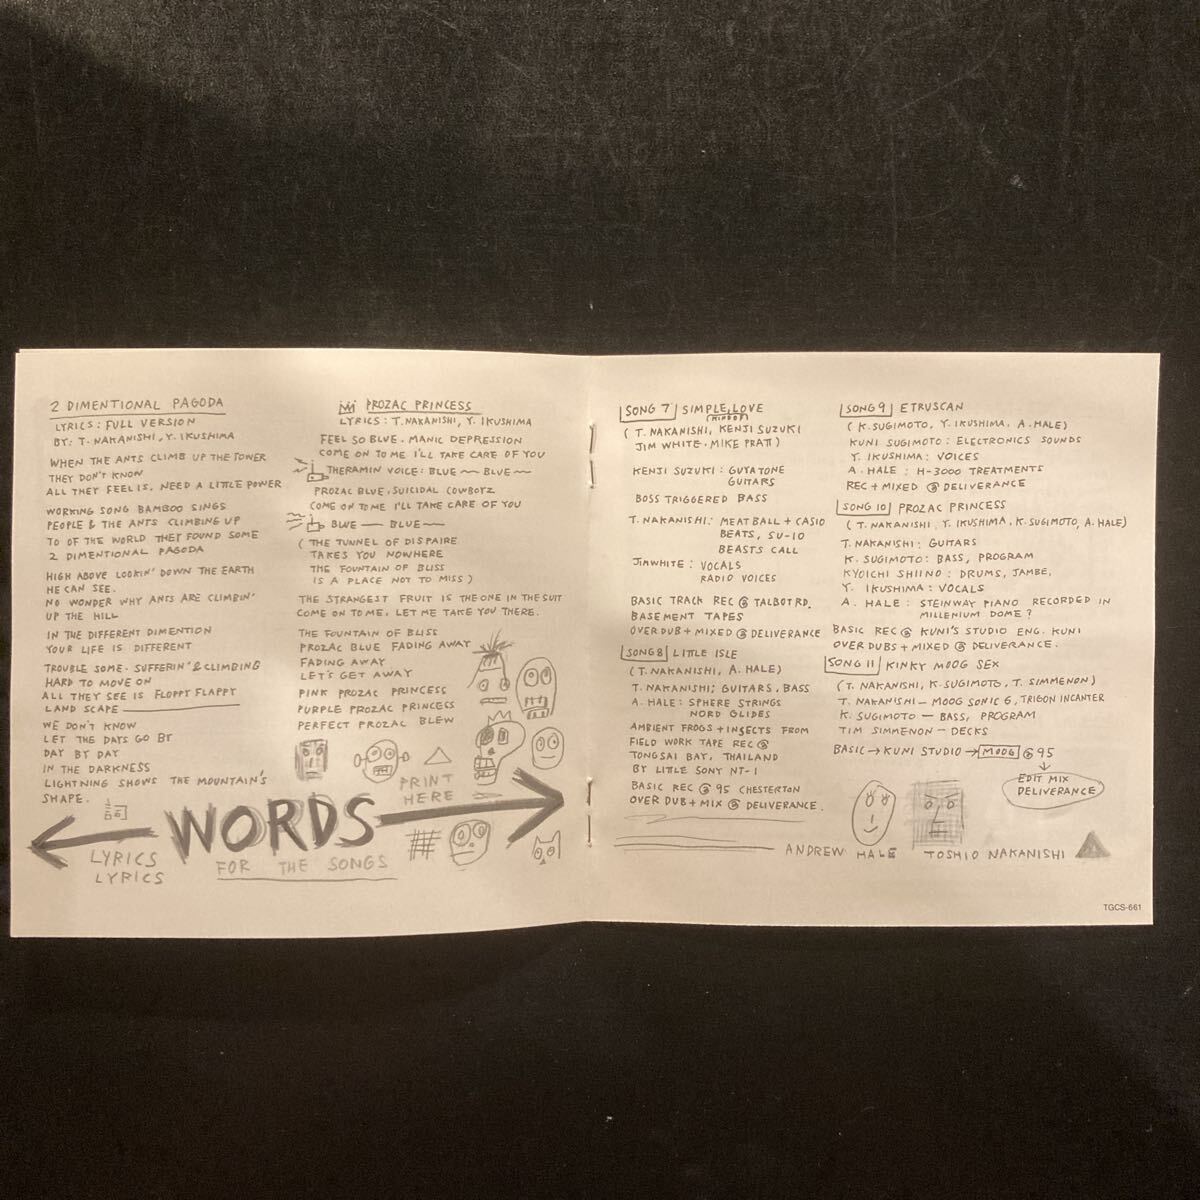 2 DIMENTIONAL PAGODA
LYRICS: FULL VERSION
BY: T. NAKANISHI, Y. IKUSHIMA
WHEN THE ANTS CLIMB UP THE TOWER
THEY DON'T KNOW
ALL THEY FEEL IS. NEED A LITTLE POWER
WORKING SONG BAMBOO SINGS
PEOPLE & THE ANTS CLIMBING UP
TO OF THE WORLD THEY FOUND SOME
2 DIMENTIONAL PAGODA
HIGH ABOVE LOOKIN' DOWN THE EARTH
HE CAN SEE.
NO WONDER WHY ANTS ARE CLIMBIN'
UP THE HILL
IN THE DIFFERENT DIMENTION
YOUR LIFE IS DIFFERENT
TROUBLE SOME. SUFFERIN' & CLIMBING
HARD TO MOVE ON
ALL THEY SEE IS FLOPPY FLAPPY
LAND SCAPE
WE DON'T KNOW
LET THE DAYS GO BY
DAY BY DAY
IN THE DARKNESS
LIGHTNING SHOWS THE MOUNTAIN'S
SHAPE.
PROZAC PRINCESS
LYRICS: T. NAKANISHI, Y. IKUSHIMA
FEEL SO BLUE. MANIC DEPRESSION
COME ON TO ME I'LL TAKE CARE OF YOU
THERAMIN VOICE: BLUE ~ BLUE ~
PROZAC BLUE. SUICIDAL COWBOYZ
COME ON TO ME I'LL TAKE CARE OF YOU
BLUE — BLUE ~
( THE TUNNEL OF DISPAIRE
TAKES YOU NOWHERE
THE FOUNTAIN OF BLISS
IS A PLACE NOT TO MISS )
THE STRANGEST FRUIT IS THE ONE IN THE SUIT
COME ON TO ME. LET ME TAKE YOU THERE.
THE FOUNTAIN OF BLISS
PROZAC BLUE FADING AWAY
FADING AWAY
LET'S GET AWAY
PINK PROZAC PRINCESS
PURPLE PROZAC PRINCESS
PERFECT PROZAC BLEW
PRINT
HERE
WORDS
LYRICS
LYRICS
FOR THE SONGS
SONG 7 SIMPLE, LOVE
(T. NAKANISHI, KENJI SUZUKI
JIM WHITE. MIKE PRATT)
KENJI SUZUKI: GUYATONE
GUITARS
BOSS TRIGGERED BASS
T. NAKANISHI: MEATBALL + CASIO
BEATS, SU-10
BEASTS CALL
JIM WHITE: VOCALS
RADIO VOICES
BASIC TRACK REC @ TALBOT RD.
BASEMENT TAPES
OVERDUB + MIXED @ DELIVERANCE
SONG 8 LITTLE ISLE
(T. NAKANISHI, A. HALE)
T. NAKANISHI: GUITARS, BASS
A. HALE: SPHERE STRINGS
NORD GLIDES
AMBIENT FROGS + INSECTS FROM
FIELD WORK TAPE REC @
TONGSAI BAY, THAILAND
BY LITTLE SONY NT-1
BASIC REC @ 95 CHESTERTON
OVER DUB + MIX @ DELIVERANCE.
SONG 9 ETRUSCAN
(K. SUGIMOTO, Y. IKUSHIMA, A. HALE)
KUNI SUGIMOTO: ELECTRONICS SOUNDS
Y. IKUSHIMA: VOICES
A. HALE: H-3000 TREATMENTS
REC + MIXED @ DELIVERANCE
SONG 10 PROZAC PRINCESS
(T. NAKANISHI, Y. IKUSHIMA, K. SUGIMOTO, A. HALE)
T. NAKANISHI: GUITARS
K. SUGIMOTO: BASS, PROGRAM
KYOICHI SHIINO: DRUMS, JAMBE,
Y. IKUSHIMA: VOCALS
A. HALE: STEINWAY PIANO RECORDED IN
MILLENIUM DOME?
BASIC REC @ KUNI'S STUDIO ENG. KUNI
OVER DUBS + MIXED @ DELIVERANCE.
SONG 11 KINKY MOOG SEX
(T. NAKANISHI, K. SUGIMOTO, T. SIMMENON)
T. NAKANISHI — MOOG SONIC 6, TRIGON INCANTER
K. SUGIMOTO — BASS, PROGRAM
TIM SIMMENON — DECKS
BASIC → KUNI STUDIO → MOOG @ 95
EDIT MIX
DELIVERANCE
ANDREW HALE
TOSHIO NAKANISHI
TGCS-661